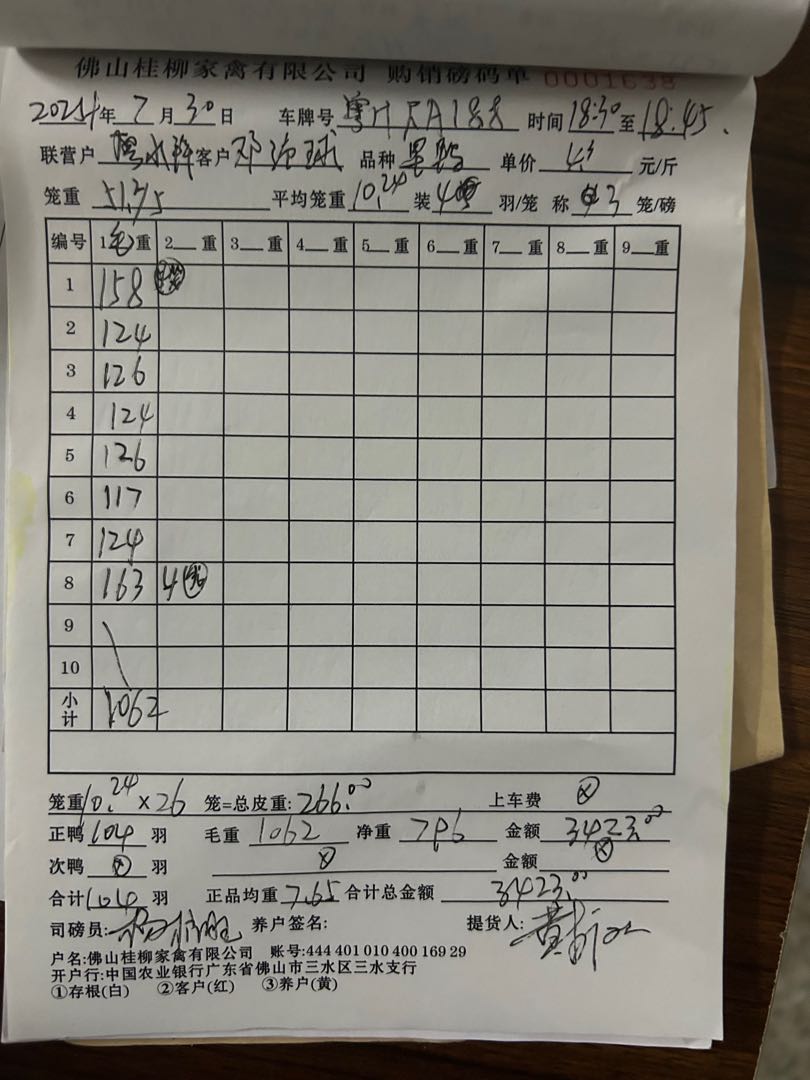 佛山桂柳家禽有限公司 购销磅码单 0001638
2024年 7月 30日 车牌号 粤H 时间 18:30 至 18:45
联营户 客户 邓 球 品种 单价 4.3 元/斤
笼重 51.2/5 平均笼重 10.24 装 4 羽/笼 称 笼/磅
编号 1毛重 2__重 3__重 4__重 5__重 6__重 7__重 8__重 9__重
1 158
2 124
3 126
4 124
5 126
6 117
7 124
8 163 4
9
10
小计 1062
笼重 10.24 × 26 笼=总皮重: 266.00 上车费 ⊗
正鸭 104 羽 毛重 1062 净重 796 金额 3423.00
次鸭 ⊗ 羽 ⊗ 金额 ⊗
合计 104 羽 正品均重 7.65 合计总金额 3423.00
司磅员: 杨 养户签名: 提货人: 黄
户名:佛山桂柳家禽有限公司 账号:444 401 010 400 169 29
开户行:中国农业银行广东省佛山市三水区三水支行
①存根(白) ②客户(红) ③养户(黄)